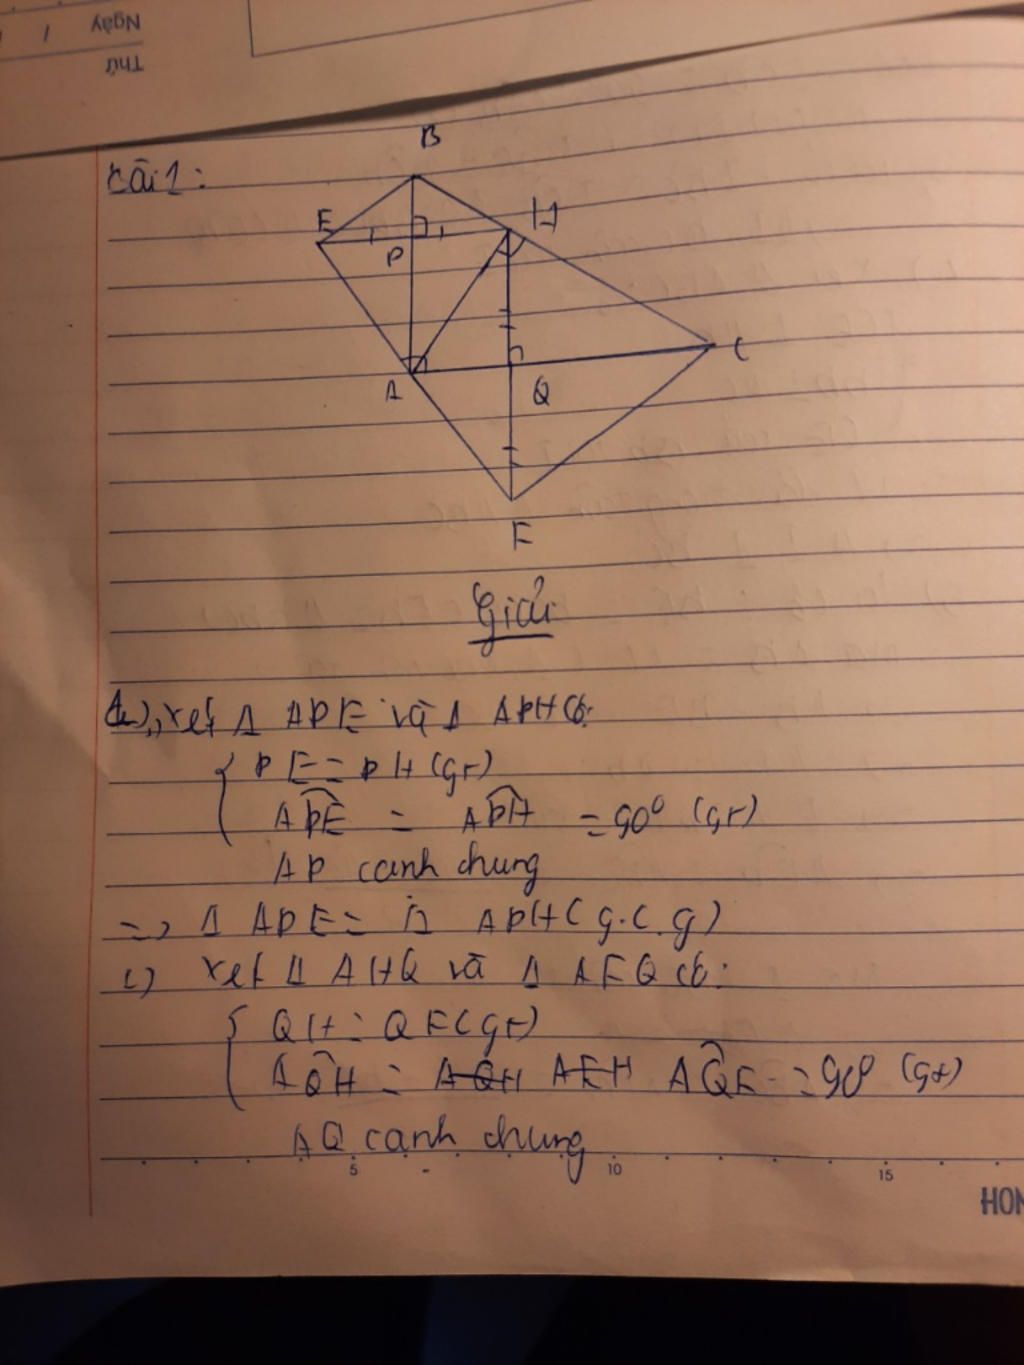 Ngày / /
Thứ
Bài 1:
B
E
H
P
A
Q
C
F
Giải
xét Δ APE và Δ APH có:
PE = PH (gt)
APE = APH = 90° (gt)
AP cạnh chung
=> Δ APE = Δ APH (g.c.g)
c) xét Δ AHQ và Δ AFQ có:
QH = QF (gt)
AQH = AQH AEH AQF = 90° (gt)
AQ cạnh chung
5 10 15
HON